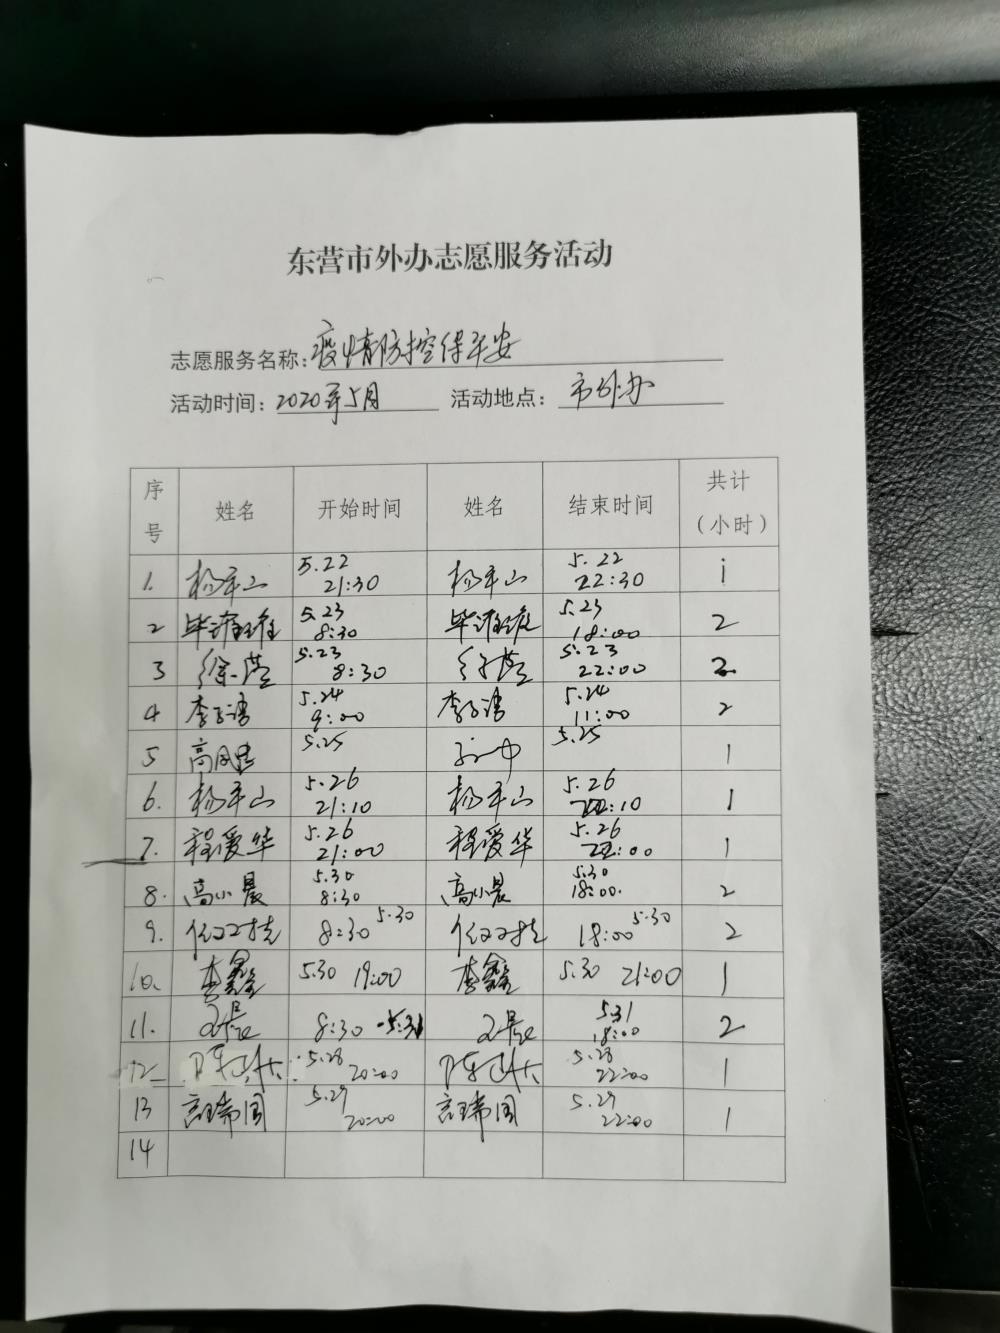 东营市外办志愿服务活动
志愿服务名称：疫情防控保平安
活动时间：2020年5月 活动地点：市外办
序号 姓名 开始时间 姓名 结束时间 共计（小时）
1. 杨平山 5.22 21:30 杨平山 5.22 22:30 1
2 毕 5.23 8:30 毕 5.23 18:00 2
3 徐 5.23 8:30 徐 5.23 22:00 2
4 李 5.24 9:00 李 5.24 11:00 2
5 高 5.25 5.25 1
6. 杨平山 5.26 21:10 杨平山 5.26 22:10 1
7. 程爱华 5.26 21:00 程爱华 5.26 22:00 1
8. 高小晨 5.30 8:30 高小晨 5.30 18:00. 2
9. 任 8:30 5.30 任 18:00 5.30 2
10. 李鑫 5.30 19:00 李鑫 5.30 21:00 1
11. 8:30 5.31 5.31 18:00 2
12 陈 5.28 20:00 陈 5.28 22:00 1
13 5.29 20:00 5.29 22:00 1
14